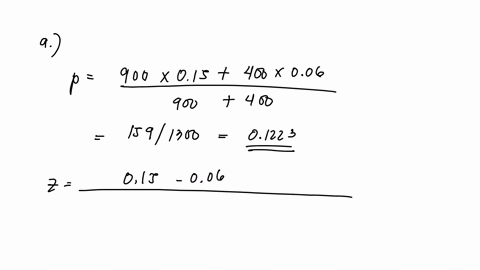 a.)
p = 900 x 0.15 + 400 x 0.06
900 + 400
= 159/1300 = 0.1223
z = 0.15 - 0.06